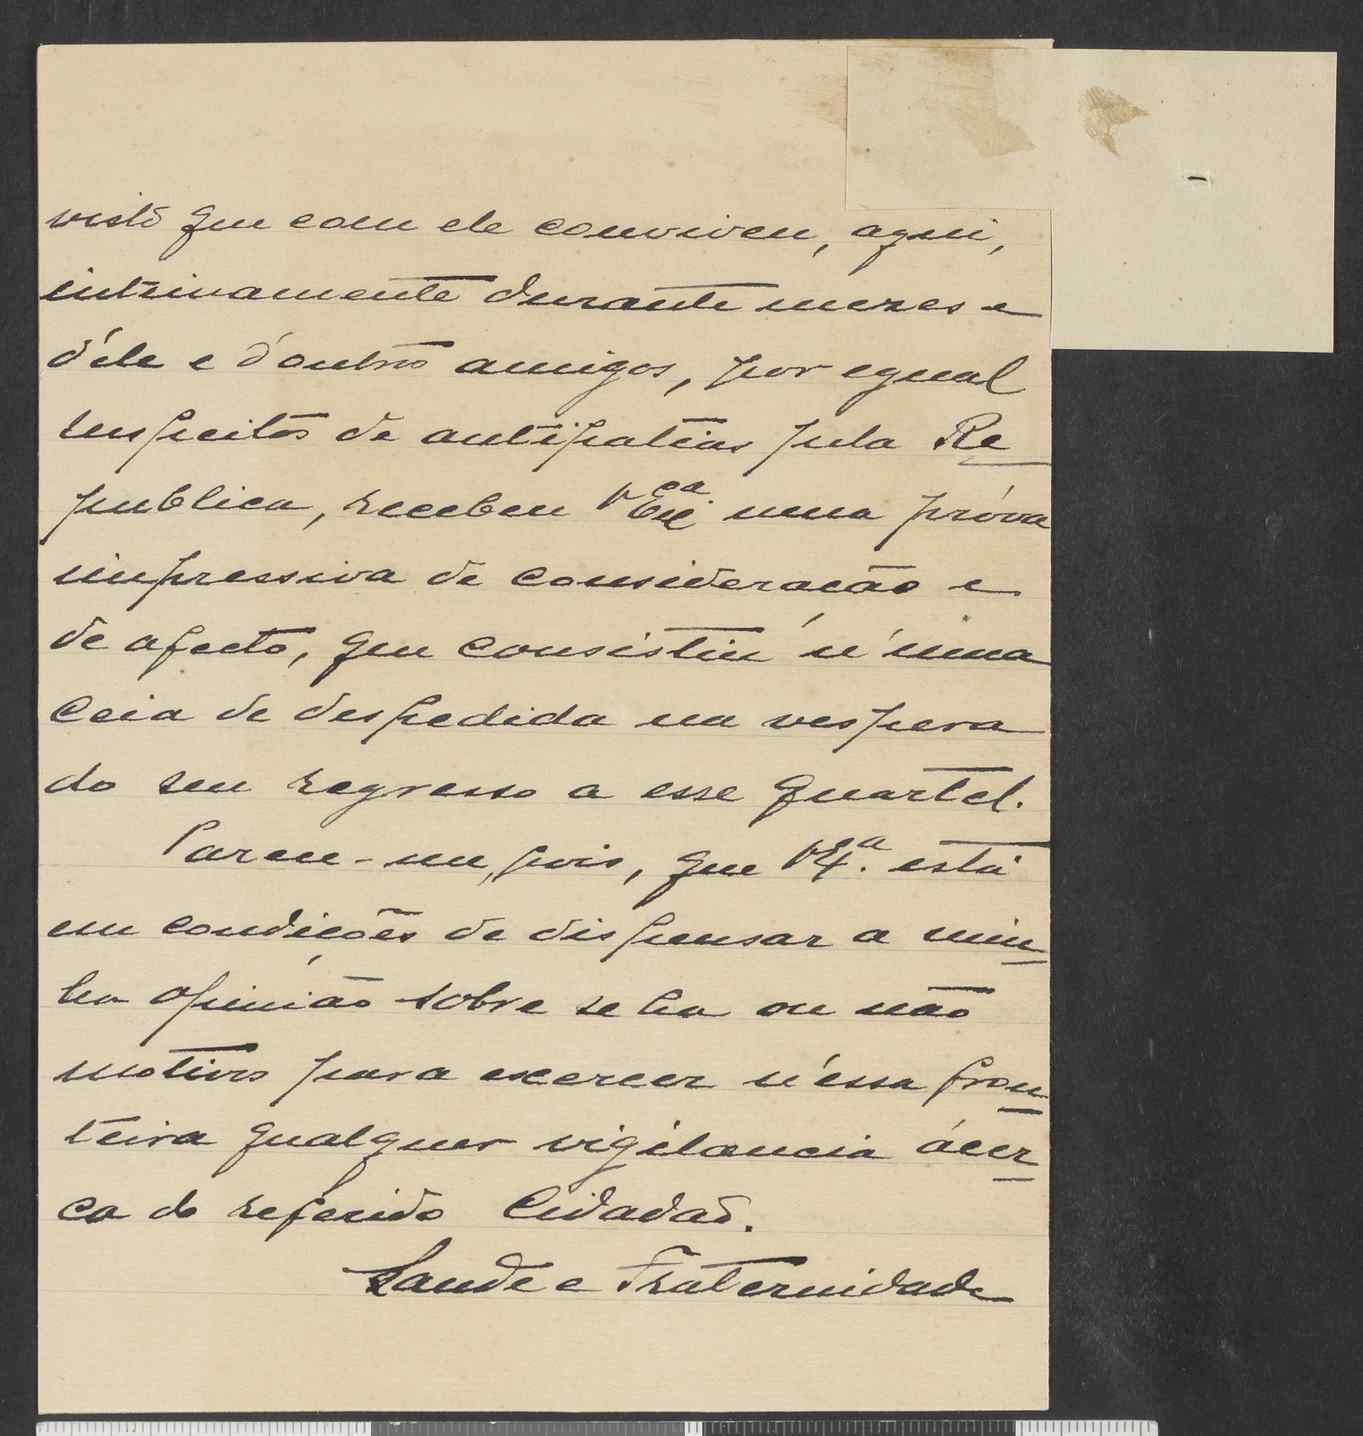 visto que com ele conviveu, aqui,
intimamente durante mezes e
d'ele e d'outros amigos, por egual
suspeitos de antipatias pela Re
publica, recebeu V Exᶜᵃ. uma próva
impressiva de consideracão e
de afecto, que consistiu n'uma
Ceia de despedida na vespera
do seu regresso a esse quartel.
Parece-me, pois, que V Eˣᵃ. está
em condicões de dispensar a min
ha opinião sobre se ha ou não
motivos para exercer n'essa fron
teira qualquer vigilancia ácer
ca do referido Cidadão.
Saude e Fraternidade